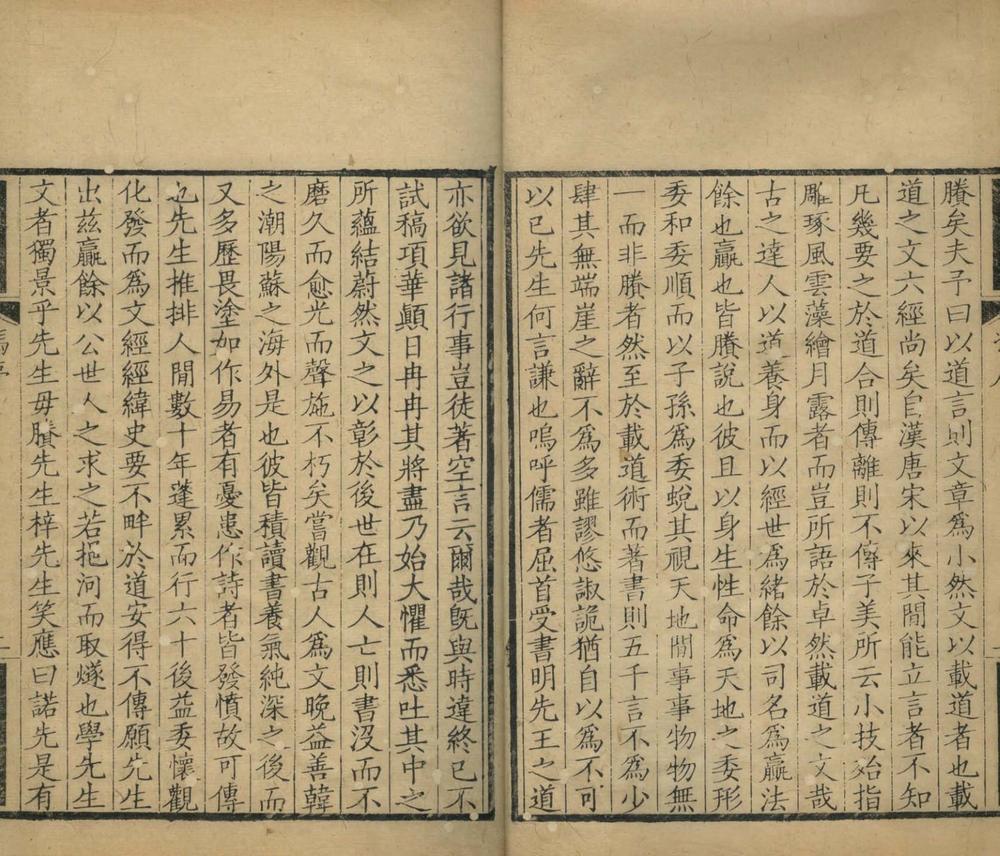 賸矣夫予曰以道言則文章爲小然文以載道者也載
道之文六經尚矣自漢唐宋以來其閒能立言者不知
凡幾要之於道合則傳離則不傳子美所云小技殆指
雕琢風雲藻繪月露者而豈所語於卓然載道之文哉
古之達人以道養身而以經世爲緒餘以司名爲贏法
餘也贏也皆賸說也彼且以身生性命爲天地之委形
委和委順而以子孫爲委蛻其視天地閒事事物物無
一而非賸者然至於載道術而著書則五千言不爲少
肆其無端崖之辭不爲多雖謬悠諔詭猶自以爲不可
以已先生何言謙也嗚呼儒者屈首受書明先王之道
亦欲見諸行事豈徒著空言云爾哉旣與時違終已不
試稿項華顚日冉冉其將盡乃始大懼而悉吐其中之
所蘊結蔚然文之以彰於後世在則人亡則書沒而不
磨久而愈光而聲施不朽矣嘗觀古人爲文晚益善韓
之潮陽蘇之海外是也彼皆積讀書養氣純深之後而
又多歷畏塗如作易者有憂患作詩者皆發憤故可傳
也先生推排人閒數十年蓬累而行六十後益委懷觀
化發而爲文經經緯史要不畔於道安得不傳願先生
出茲贏餘以公世人之求之若挹河而取燧也學先生
文者獨景乎先生毋賸先生梓先生笑應曰諾先是有